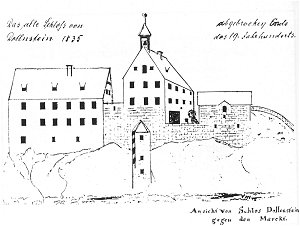 Das alte Schloß von
Dollnstein 1835
abgebrochen Ende
des 19. Jahrhunderts.
Ansicht von Schlos Dollenstein
gegen den Marckt.